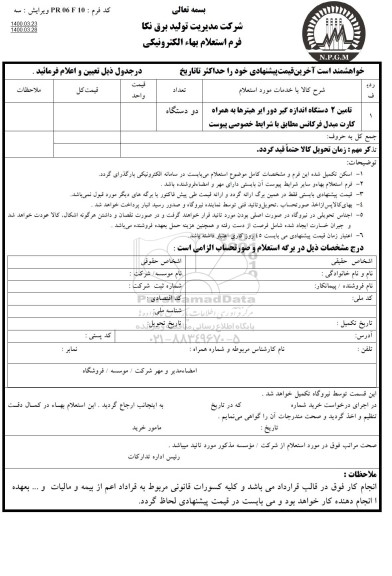 بسمه تعالی
کد فرم : PR 06 F 10 ویرایش : سه
شرکت مدیریت تولید برق نکا
فرم استعلام بهاء الکترونیکی
1400.03.23
1400.03.28
N.P.G.M
خواهشمند است آخرین قیمت پیشنهادی خود را حداکثر تا تاریخ درجدول ذیل تعیین و اعلام فرمائید .
ردیف شرح کالا یا خدمات مورد استعلام تعداد قیمت واحد قیمت کل ملاحظات
۱ تامین ۲ دستگاه اندازه گیر دور ایر هیترها به همراه کارت مبدل فرکانس مطابق با شرایط خصوصی پیوست دو دستگاه
جمع کل به حروف :
تذکر مهم : زمان تحویل کالا حتماً قید گردد.
توضیحات:
۱- اسکن تکمیل شده این فرم و مشخصات کامل موضوع استعلام می‌بایست در سامانه الکترونیکی بارگذاری گردد.
۲- فرم استعلام بهاء و سایر شرایط پیوست آن بایستی دارای مهر و امضاء فروشنده باشد .
۳- قیمت پیشنهادی بایستی فقط در همین برگه ارائه گردد و ارائه قیمت طی پیش فاکتور یا برگه های دیگر مورد قبول نمی‌باشد.
۴- بهای کالا پس از اخذ صورتحساب ، تحویل و تائید فنی توسط نماینده نیروگاه و صدور رسید انبار پرداخت خواهد شد .
۵- اجناس تحویلی در نیروگاه در صورت اصلی بودن مورد تائید قرار خواهند گرفت و در صورت نقصان و داشتن هرگونه اشکال، کالا عودت خواهد شد
و جبران خسارت ایجاد شده شامل فرصت از دست رفته و همچنین هزینه حمل بعهده فروشنده می‌باشد .
۶- اعتبار زمان قیمت پیشنهادی می بایست ۱۵ روز کاری اعتبار داشته باشد.
درج مشخصات ذیل در برگه استعلام و صورتحساب الزامی است :
اشخاص حقیقی اشخاص حقوقی
نام و نام خانوادگی : نام موسسه / شرکت :
نام فروشنده / پیمانکار: شماره ثبت شرکت :
کد ملی: کد اقتصادی :
شناسه ملی:
تاریخ تکمیل : تاریخ تحویل:
آدرس: کد پستی :
تلفن : نام کارشناس مربوطه و شماره همراه : نمابر :
ParsNamadData
۰۲۱-۸۸۳۴۹۶۷۰-۵
امضاء مدیر و مهر شرکت / موسسه / فروشگاه
این قسمت توسط نیروگاه تکمیل خواهد شد .
در اجرای درخواست خرید شماره که در تاریخ به اینجانب ارجاع گردید . این استعلام بهاء در کمال دقت
تنظیم و اخذ گردید و صحت مندرجات آن را گواهی می‌نمایم .
تاریخ : مامور خرید
صحت مراتب فوق در مورد استعلام از شرکت / مؤسسه مذکور مورد تائید میباشد .
رئیس اداره تدارکات
ملاحظات :
انجام کار فوق در قالب قرارداد می باشد و کلیه کسورات قانونی مربوط به قراداد اعم از بیمه و مالیات و ... بعهده
انجام دهنده کار خواهد بود و می بایست در قیمت پیشنهادی لحاظ گردد.